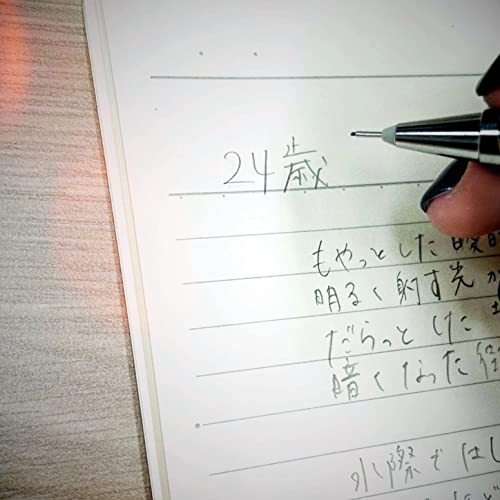 24歳
もやっとした瞬間
明るく射す光が
だらっとした
暗くなった街
水際では